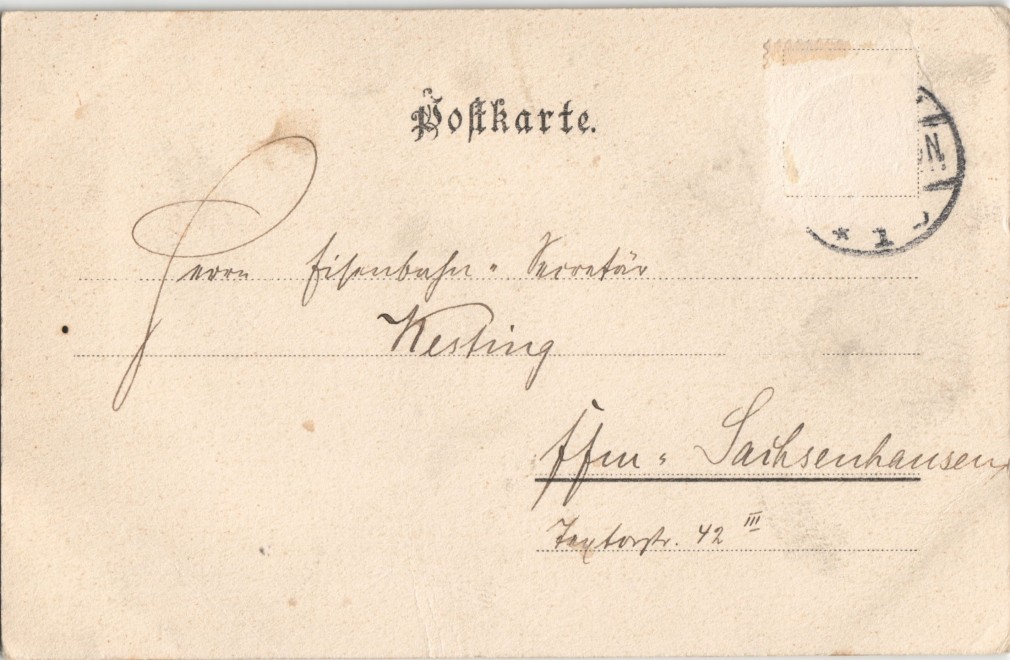 Postkarte.
N.
* 1
Herrn Eisenbahn- Secretär
Westing
Ffm- Sachsenhausen
Textorstr. 42 III